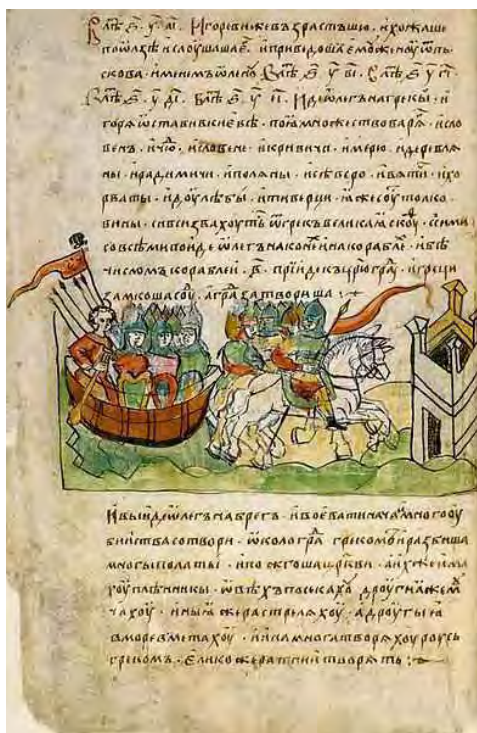 В лѣⷮ ҂ѕ҃ у҃ аі. Игореви же възрастъшю. и хожаше
по ѡлзѣ и слоушаша е. и приведоша емоу женоу ѿ пь
скова. именемъ ѡлену В лѣⷮ ҂ѕ҃ у҃ ві. В лѣⷮ ҂ѕ҃ у҃ гі.
В лѣⷮ ҂ѕ҃ у҃ ді. В лѣⷮ ҂ѕ҃ у҃ еі. Иде ѡлегъ на грекы. и
горѧ ѡстави в киевѣ. поѧ множество варѧ. и сло
венъ. и чюⷣ. и словене. и кривичи. и мерю. и деревлѧ
ны. и радимичи. и полѧны. и сѣверо. и вѧтиⷱ. и хо
рваты. и доулѣбы. и тиверци. ꙗже соуⷮ толко
вины. си вси звахоуть ѿ грекъ великаѧ скоуⷴ. с сими
со всѣми поиде ѡлегъ на конеⷯ и на кораблеⷯ. и бѣ
числомъ кораблеи. в҃. прїиде к црюградоу. и греци
замкоша соуⷣ. а граⷣ затвориша
И выиде ѡлегъ на брегъ. и воевати нача. и много оу
бииства сотвори. ѡколо граⷣ грекомъ. и разбиша
многы полаты. и пожгоша церкви. а иⷯ же има
хоу плѣнникы. ѡвѣхъ посѣкахоу дроугиꙗ же моу
чахоу. иныꙗ же растрелѧхоу. а дроугыꙗ
в море вметахоу. и ина многа творѧхоу роусь
грекомъ. елико же ратнии творѧть